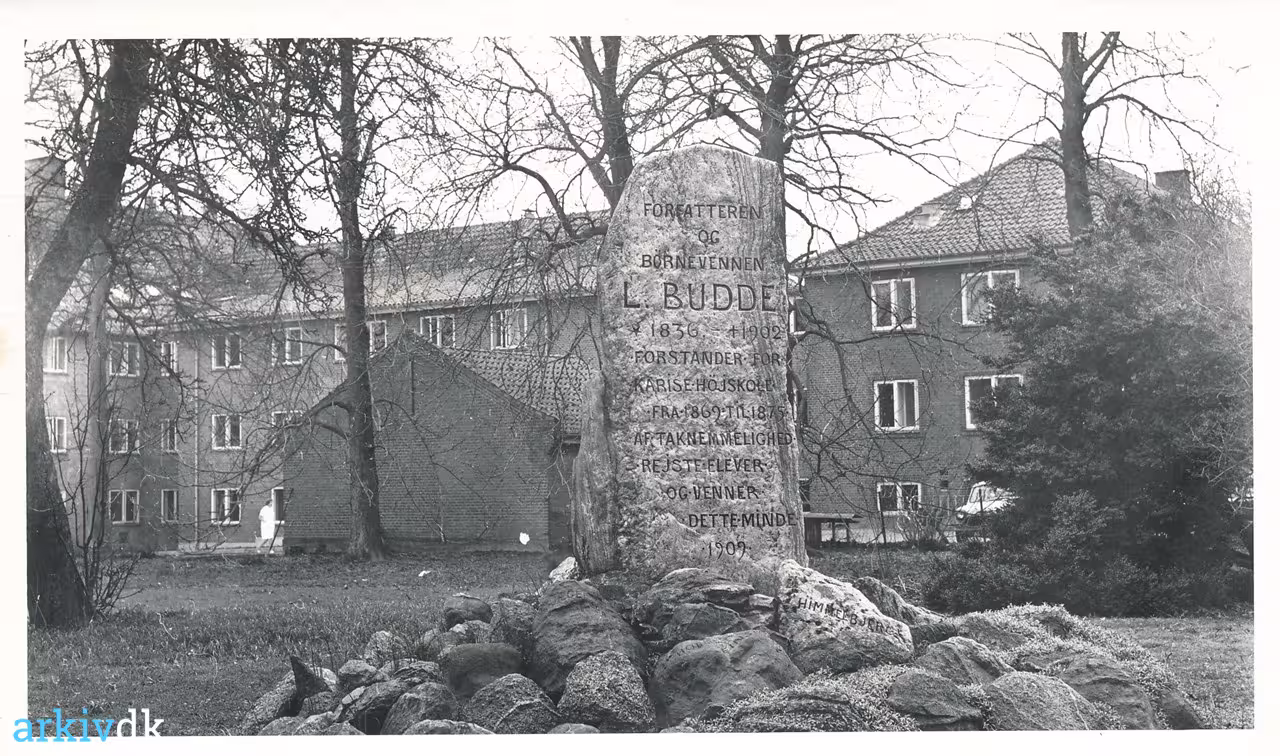 FORFATTEREN
OG
BØRNEVENNEN
L. BUDDE
* 1836 - †1902
FORSTANDER·FOR
KARISE·HØJSKOLE
FRA·1869·TIL·1875
AF·TAKNEMMELIGHED
REJSTE·ELEVER
OG·VENNER
DETTE·MINDE
1909
HIMMELBJERG
arkivdk